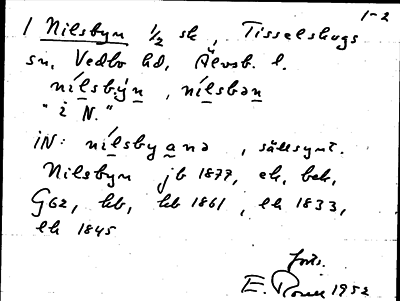 1-2
/ Nilsbyn 1/2 sk, Tisselskogs
sn, Vedbo hd, Älvsb. l.
nílsbýn, nílsbən
"i N."
iN: nílsbyanə, sällsynt.
Nilsbyn jb 1877, ek, bek,
G62, kb, hb 1861, lk 1833,
lk 1845
forts.
E. 1952